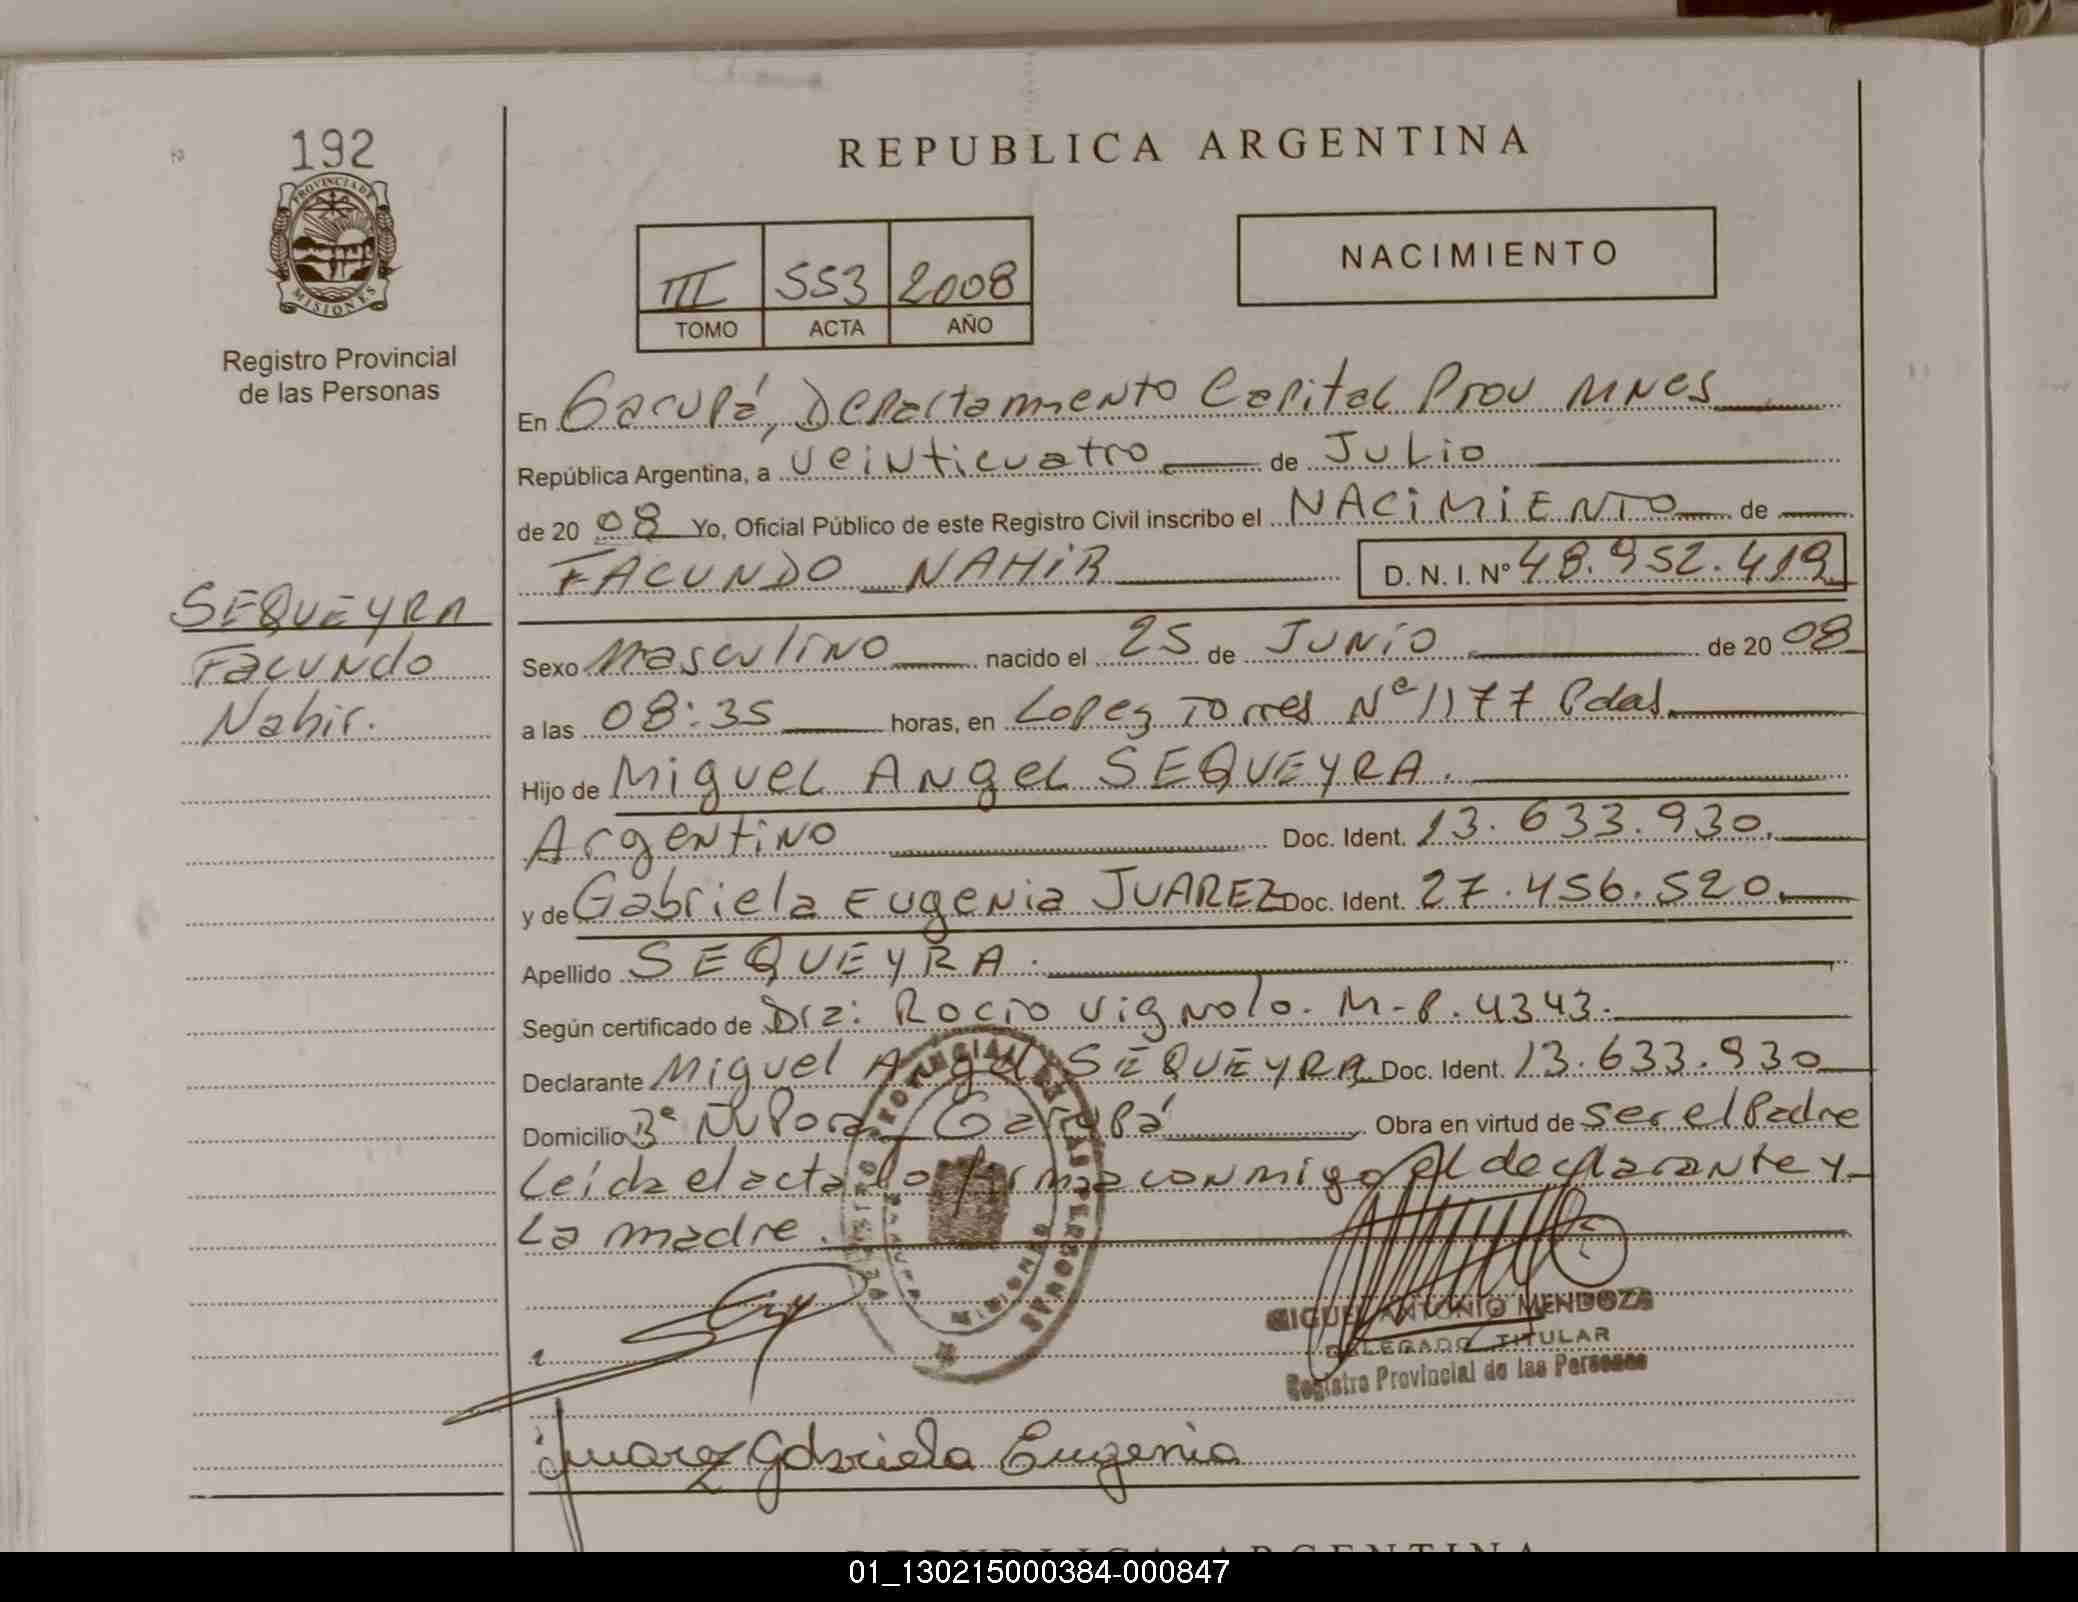 192
PROVINCIA DE
MISIONES
Registro Provincial
de las Personas
SEQUEYRA
Facundo
Nahir.
REPUBLICA ARGENTINA
III 553 2008
TOMO ACTA AÑO
NACIMIENTO
En Garupá, Departamento Capital Prov Mnes
República Argentina, a veinticuatro de Julio
de 2008 Yo, Oficial Público de este Registro Civil inscribo el NACIMIENTO de
FACUNDO NAHIR D. N. I. Nº 48.952.419
Sexo Masculino nacido el 25 de Junio de 2008
a las 08:35 horas, en Lopez Torres Nº 1177 Pdas.
Hijo de Miguel Angel SEQUEYRA.
Argentino Doc. Ident. 13.633.930.
y de Gabriela Eugenia JUAREZ Doc. Ident. 27.456.520.
Apellido SEQUEYRA.
Según certificado de Dra: Rocio Vignolo. M-P. 4343.
Declarante Miguel Angel SEQUEYRA Doc. Ident. 13.633.930
Domicilio Bº Ñu Pora Garupá Obra en virtud de ser el Padre
Leída el acta lo firma conmigo el declarante y
La madre.
MIGUEL ANTONIO MENDOZA
DELEGADO TITULAR
Registro Provincial de las Personas
Juarez Gabriela Eugenia
REPUBLICA ARGENTINA
01_130215000384-000847